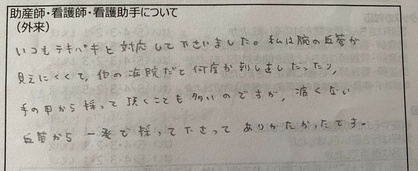 助産師・看護師・看護助手について
(外来)
いつもテキパキと対応して下さいました。私は腕の血管が
見えにくくて、他の病院だと何度か刺しましたったり、
手の甲から採って頂くことも多いのですが、痛くない
血管から一発で採って下さって ありがたかったです。